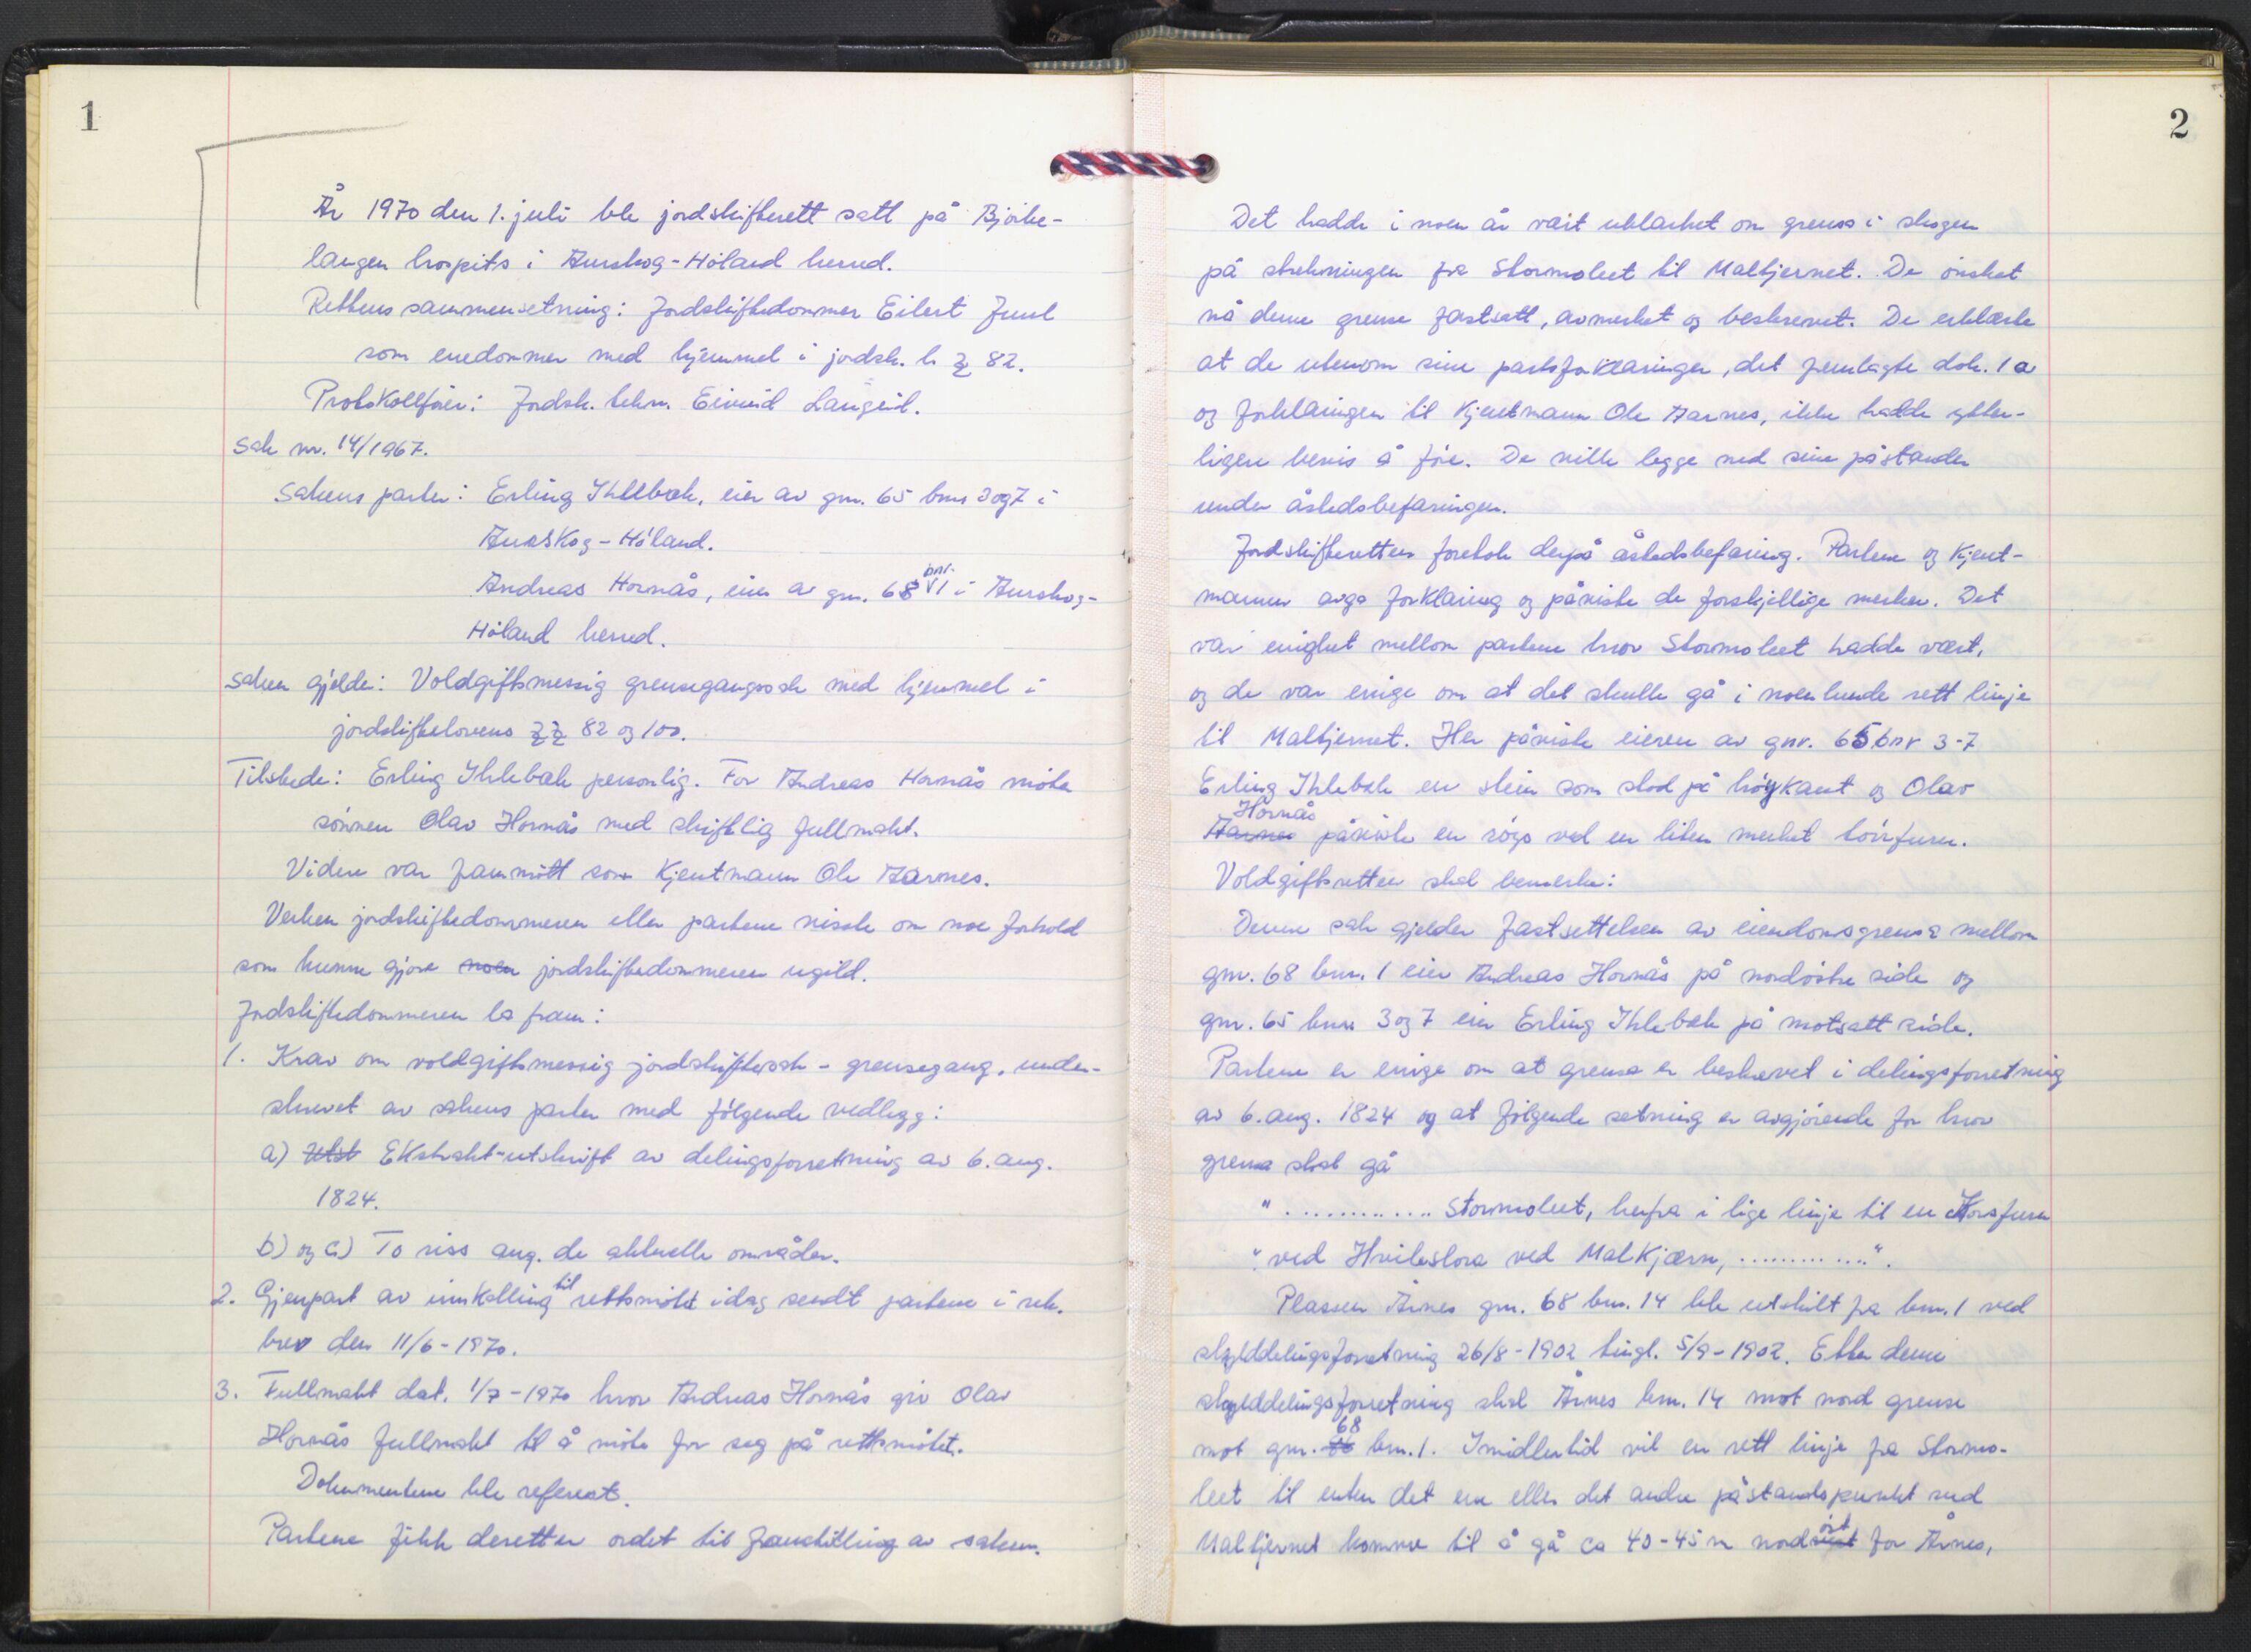 1
År 1970 den 1. juli ble jordskifterett satt på Bjørke-
langen hospits i Aurskog-Höland herred.
Rettens sammensetning: Jordskiftedommer Eilert Juul
som enedommer med hjemmel i jordsk. l. §  82.
Protokollförer: Jordsk. tekn. Eivind Langeid.
Sak nr. 14/1967.
Sakens parter: Erling Ihlebæk, eier av gnr. 65 bnr 3 og 7 i
Aurskog-Höland.
Andreas Hornås, eier av gnr. 68 bnr. 1 i Aurskog-
Höland herred.
Saken gjelder: Voldgiftsmessig grensegangssak med hjemmel i
jordskiftelovens §§ 82 og 100.
Tilstede: Erling Ihlebæk personlig. For Andreas Hornås möter
sönnen Olav Hornås med skriftlig fullmakt.
Videre var frammött som kjentmann Ole Aarnes.
Verken jordskiftedommeren eller partene visste om noe forhold
som kunne gjøre noen jordskiftedommeren ugild.
Jordskiftedommeren la fram:
1. Krav om voldgiftsmessig jordskiftesak - grensegang, under-
skrevet av sakens parter med fölgende vedlegg:
a) Utst Ekstrakt-utskrift av delingsforretning av 6. aug.
1824.
b) og c) To riss ang. de aktuelle områder.
2. Gjenpart av innkalling til rettsmöte idag sendt partene i rek.
brev den 11/6-1970.
3. Fullmakt dat. 1/7-1970 hvor Andreas Hornås gir Olav
Hornås fullmakt til å möte for seg på rettsmötet.
Dokumentene ble referert.
Partene fikk deretter ordet til framstilling av saken.
2
Det hadde i noen år vært uklarhet om grensa i skogen
på strekningen fra Stormoleet til Maltjernet. De önsket
nå denne grense fastsatt, avmerket og beskrevet. De erklærte
at de utenom sine partsforklaringer, det fremlagte dok. 1 a
og forklaringen til kjentmann Ole Aarnes, ikke hadde ytter-
ligere bevis å före. De ville legge ned sine påstander
under åstedsbefaringen.
Jordskifteretten foretok derpå åstedsbefaring. Partene og kjent-
mannen avga forklaring og påviste de forskjellige merker. Det
var enighet mellom partene hvor Stormoleet hadde vært,
og de var enige om at det skulle gå i noenlunde rett linje
til Maltjernet. Her påviste eieren av gnr. 65 bnr 3-7
Erling Ihlebæk en stein som stod på höykant og Olav
Aarnes Hornås påviste en röys ved en liten merket törrfuru.
Voldgiftsretten skal bemerke:
Denne sak gjelder fastsettelsen av eiendomsgrensa mellom
gnr. 68 bnr. 1 eier Andreas Hornås på nordöstre side og
gnr. 65 bnr 3 og 7 eier Erling Ihlebæk på motsatt side.
Partene er enige om at grensa er beskrevet i delingsforretning
av 6. aug. 1824 og at fölgende setning er avgjörende for hvor
grensa skal gå
" .............. Stormoleet, herfra i lige linje til en Korsfuru
" ved Hvileslora ved Malkjærn, ............".
Plassen Årnes gnr. 68 bnr. 14 ble utskilt fra bnr. 1 ved
skylddelingsforretning 26/8-1902 tingl. 5/9-1902. Etter denne
skylddelingsforretning skal Årnes bnr. 14 mot nord grense
mot gnr. 68 bnr. 1. Imidlertid vil en rett linje fra Stormo-
leet til enten det ene eller det andre påstandspunkt ved
Maltjernet komme til å gå ca 40-45 m nordöst for Årnes,